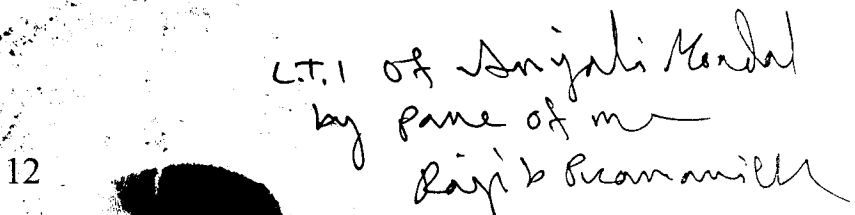 L.T.I of Anjali Mondal
by pane of me
12
Rajib Pramanick